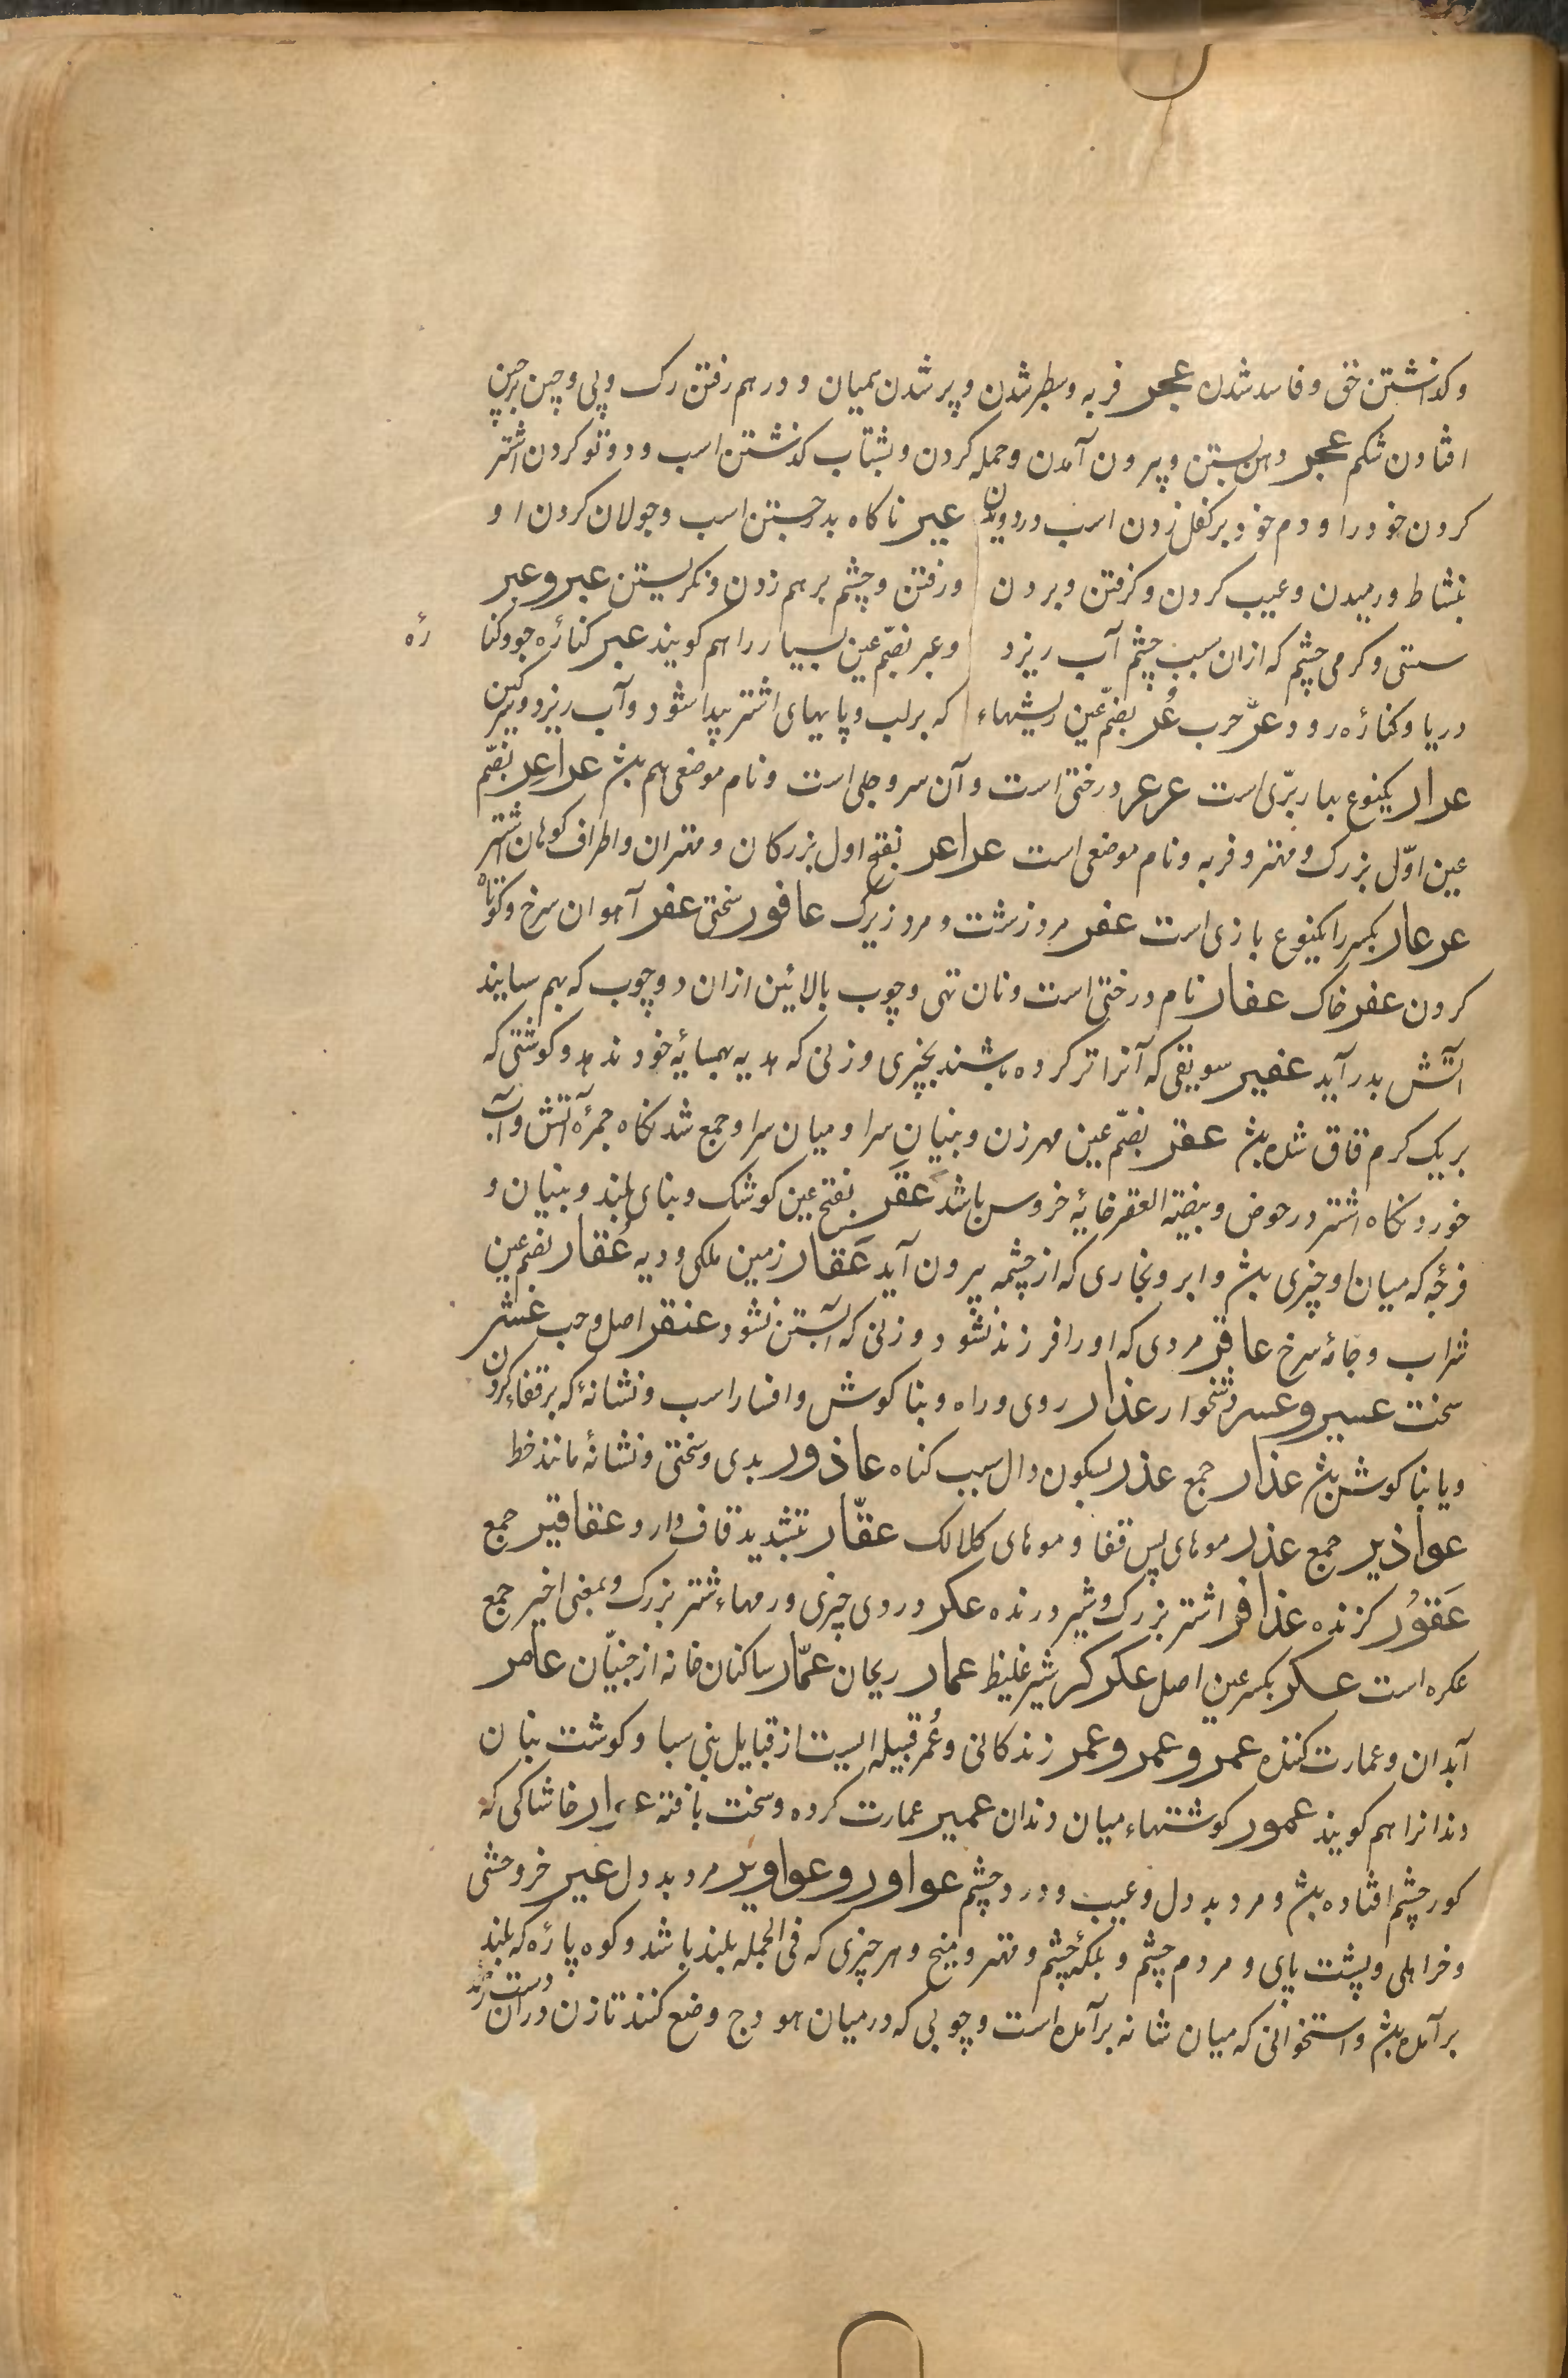 و کذاشتن حق و فاسد شدن عجر فربه و سطبر شدن و پر شدن همیان و درهم رفتن رک و پی و چین برچین
افتادن شکم عجر دهن بستن و بیرون آمدن و حمله کردن و بشتاب کذشتن اسب و دوتو کردن اشتر
کردن خود را و دم خود برکفل زدن اسب در دویدن عیر ناکاه بدر جستن اسب و جولان کردن او
بنشاط و رمیدن و عیب کردن و کرفتن و بردن و رفتن و چشم برهم زدن و نکریستن عبر و عبر
سستی و کرمی چشم که ازان سبب چشم آب ریزد و عبر بضمّ عین بسیار را هم کویند عبر کنارهٔ جو و کنارهٔ
دریا و کنارهٔ رود و عرّ حرب عُر بضمّ عین ریشهاء که بر لب و پایهای اشتر پیدا شود و آب ریزد و سرکین
عرار یکنوع بهار برّی است عرعر درختی است و آن سرو جلی است و نام موضعی هم بش عراعر بضمّ
عین اوّل بزرک و مهتر و فربه و نام موضعی است عراعر بفتح اول بزرکان و مهتران و اطراف کوهان اشتر
عرعار بکسر را یکنوع بازی است عفر مرد زشت و مرد زیرک عافور سختی عفر آهوان سرخ و کوتاه
کردن عفر خاک عفار نام درختی است و نان تهی و چوب بالائین ازان دو چوب که بهم سایند
آتش بدر آید عفیر سویقی که آنرا تر کرده باشند بچیزی و زنی که هدیه بهمسایهٔ خود ندهد و کوشتی که
بریک کرم قاق شده بش عقر بضمّ عین مهر زن و بنیان سرا و میان سرا و جمع شدنکاه جمرهٔ آتش و آب
خوردنکاه اشتر در حوض و بیضة العقر خایهٔ خروس باشد عَقَر بفتح عین کوشک و بنای بلند و بنیان و
فرجهٔ که میان او چیزی بش و ابر و بخاری که از چشمه بیرون آید عَقار زمین ملکی و دیه عُقار بضم عین
شراب و جامهٔ سرخ عاقر مردی که او را فرزند نشود و زنی که آبستن نشود عنقر اصل و حب عسر
سخت عسیر و عسر دشخوار عذار روی و راه و بناکوش و افسار اسب و نشانهٔ که بر قفاء کردن
و یا بناکوش بش عذار جمع عذر بسکون دال سبب کناه عاذور بدی و سختی و نشانهٔ مانند خط
عواذیر جمع عذر موهای پس قفا و موهای کلالک عقّار بتشدید قاف دارو عقاقیر جمع
عَقوُر کزنده عذافر اشتر بزرک و شیر درنده عکر دردی چیزی و رمهاء شتر بزرک و بمعنی اخیر جمع
عکره است عکر بکسر عین اصل عکرکر شیر غلیظ عمار ریحان عمّار ساکنان خانه از جنیّان عامر
آبدان و عمارت کننده عمر و عمر و عمر زندکانی و عُمر قبیله ایست از قبایل بنی سبا و کوشت بنان
دندانرا هم کویند عمور کوشتهاء میان دندان عمیر عمارت کرده و سخت بافته خاشاکی که
کور چشم افتاده بش و مرد بد دل و عیب و درد چشم عواور و عواویر مرد بد دل عیر خر وحشی
و خر اهلی و پشت پای و مردم چشم و پلکهٔ چشم و مهتر و میخ و هر چیزی که فی الجمله بلند باشد و کوه پارهٔ که بلند
برآمده بش و استخوانی که میان شانه برآمده است و چوبی که در میان هودج وضع کنند تا زن دران دست زند